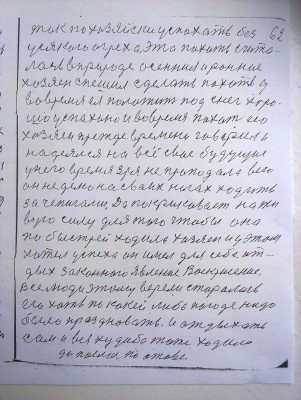 так похозяйски успохать без 62
усякого огреха, эта похоть счита-
лась в природе осенния и ранние
хозяен спешил сделать похоть
вовремя ея положит под снег хоро-
шо успохано и вовремя похот его
хозяен преждевремени говарил и
надеялся на всё свае будущие
у него время зря не пропадало
он неделю на сваих ногах ходить
за чепигами. Да покрисывает на жи
вую силу для того чтобы она
по быстрей ходила хозяен и у этом
хотел успеха он имел для себе от-
дых законного явление Воскрисение.
Все люди этому верели старалися
его хать по какей либо погоде надо
было празновать. и отдыхать
сам и всякуды тоже ходила